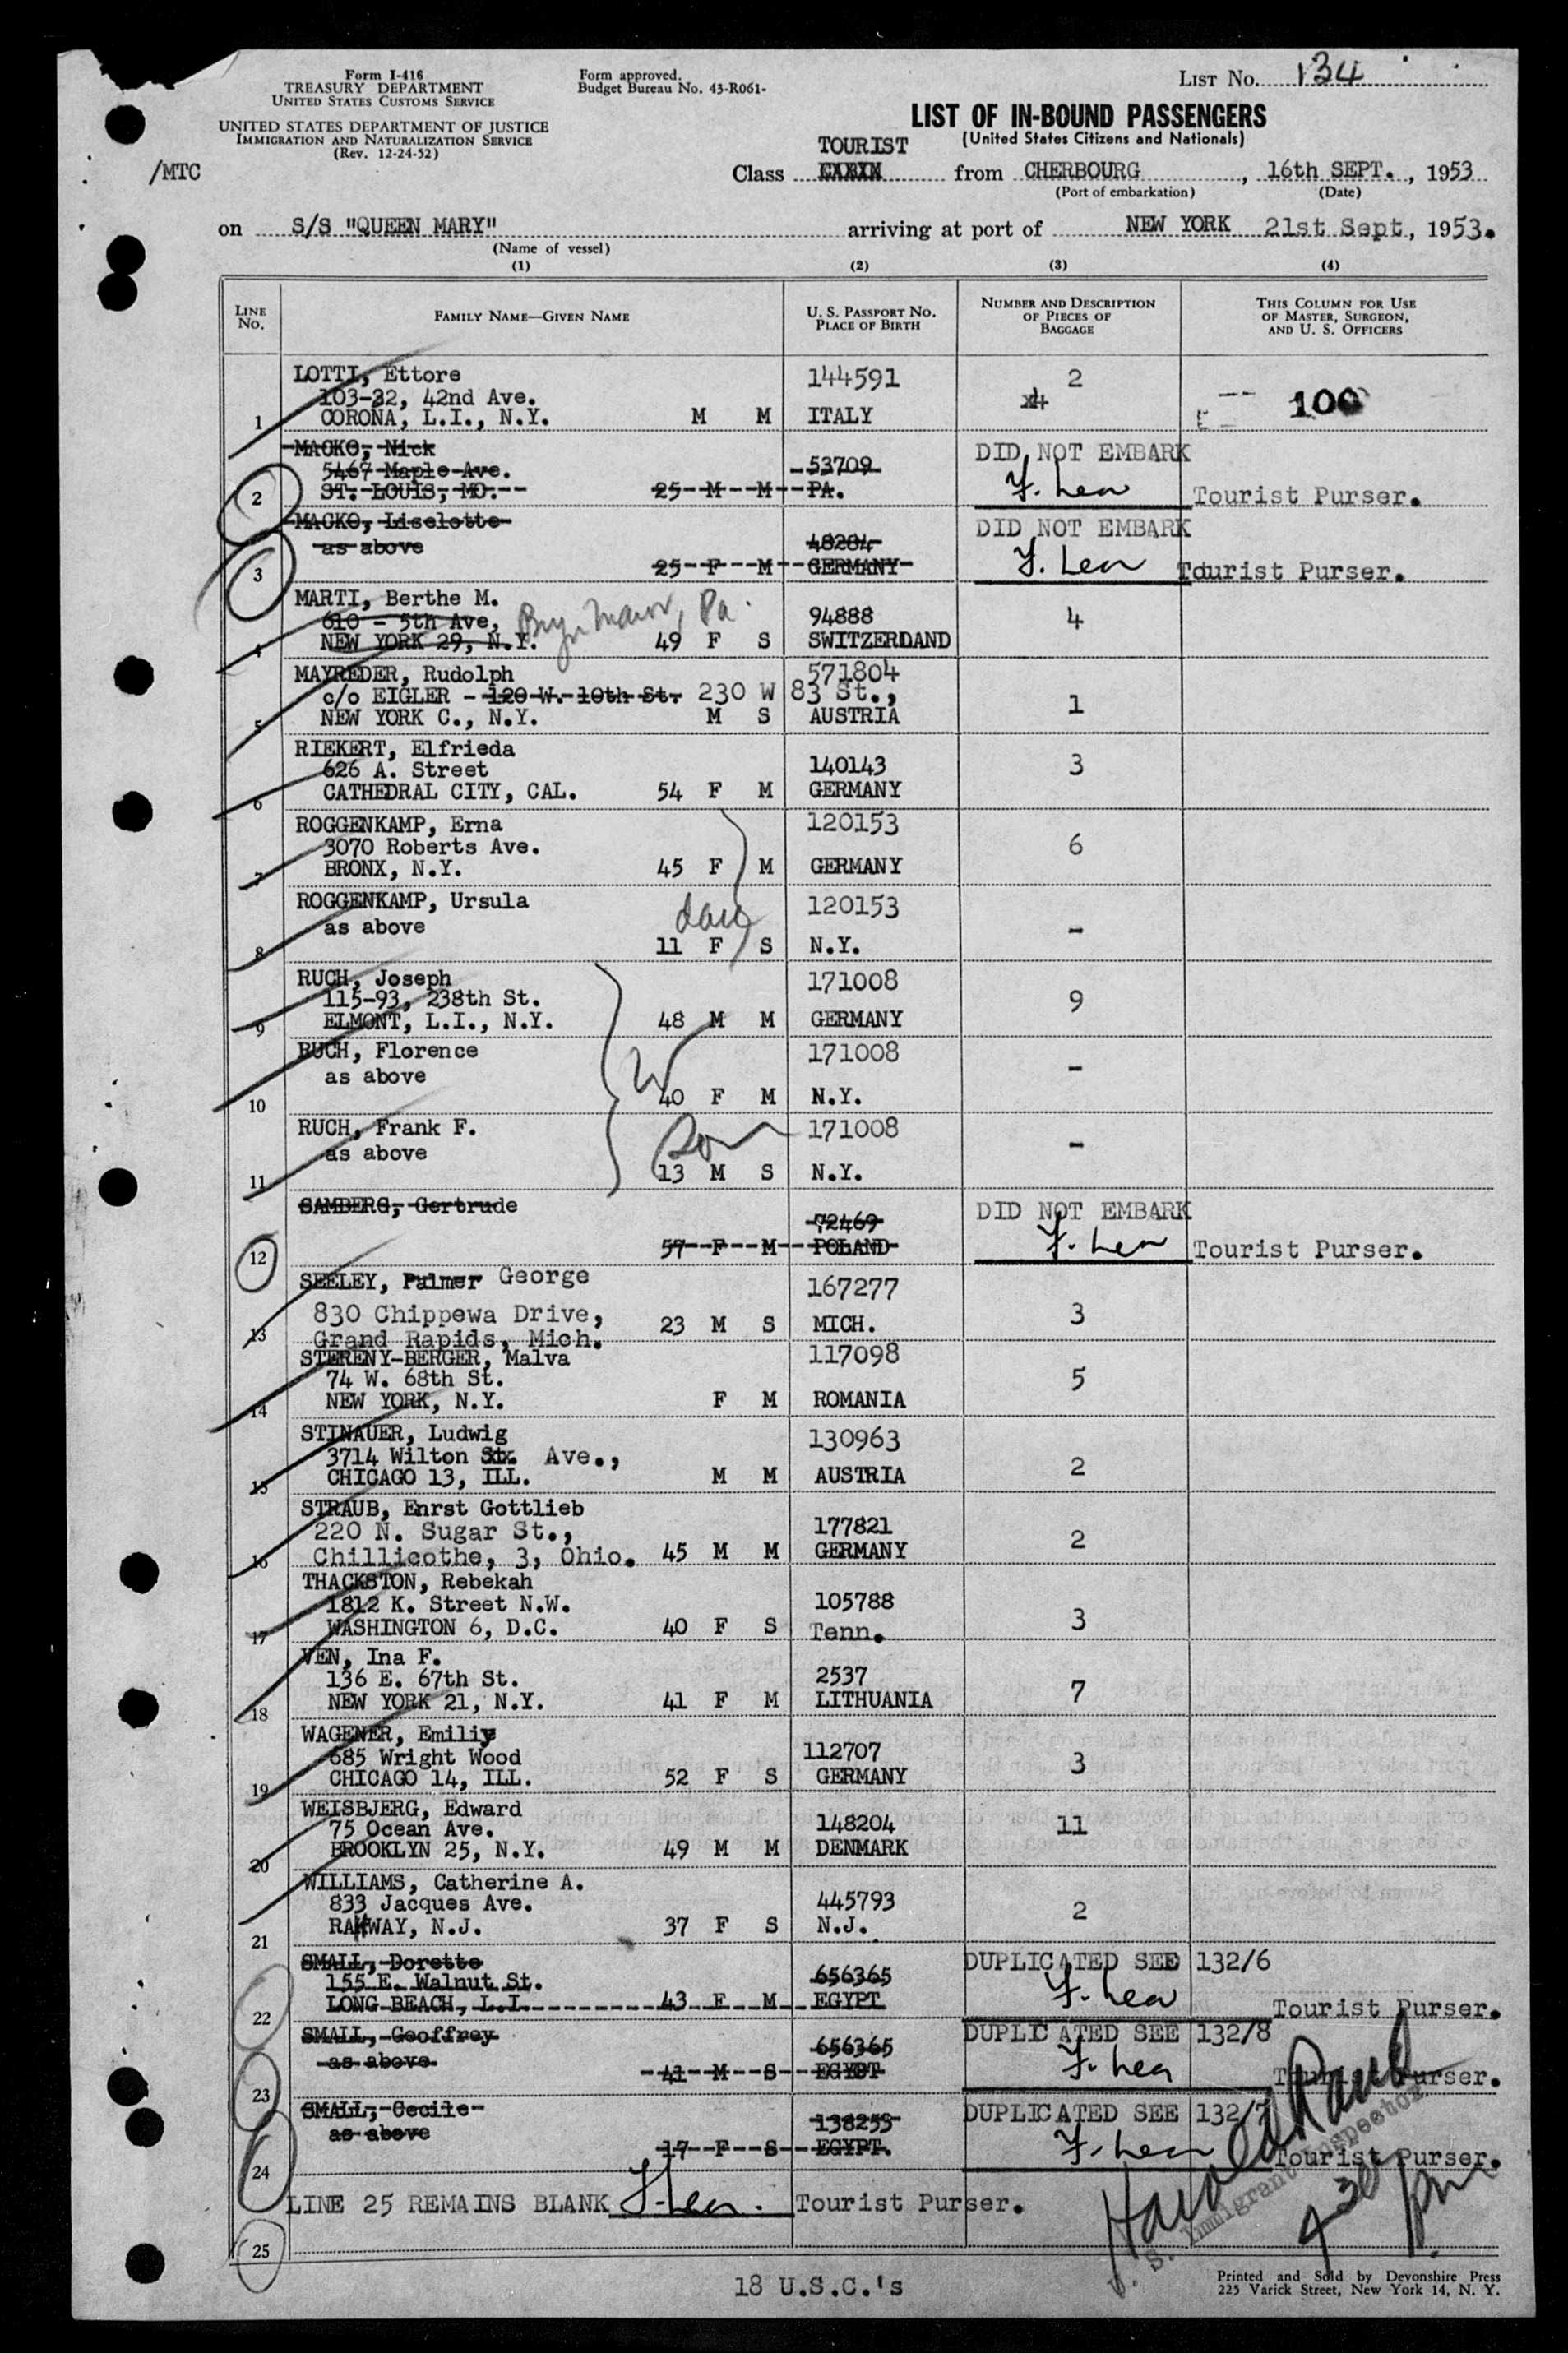 Form I-416
TREASURY DEPARTMENT
UNITED STATES CUSTOMS SERVICE
UNITED STATES DEPARTMENT OF JUSTICE
IMMIGRATION AND NATURALIZATION SERVICE
(Rev. 12-24-52)
Form approved.
Budget Bureau No. 43-R061-
LIST No. 134
LIST OF IN-BOUND PASSENGERS
(United States Citizens and Nationals)
/MTC
TOURIST
Class CABIN from CHERBOURG, 16th SEPT., 1953
(Port of embarkation) (Date)
on S/S "QUEEN MARY" arriving at port of NEW YORK 21st Sept, 1953.
(Name of vessel)
(1) (2) (3) (4)
LINE No. FAMILY NAME—GIVEN NAME U. S. PASSPORT NO. PLACE OF BIRTH NUMBER AND DESCRIPTION OF PIECES OF BAGGAGE THIS COLUMN FOR USE OF MASTER, SURGEON, AND U. S. OFFICERS
LOTTI, Ettore 144591 2
103-32, 42nd Ave. 100
1 CORONA, L.I., N.Y. M M ITALY
MACKO, Nick DID NOT EMBARK
5467 Maple Ave. 53709
2 ST. LOUIS, MO. 25 M M PA. F. Lea Tourist Purser.
MACKO, Liselotte DID NOT EMBARK
as above 48284
3 25 F M GERMANY F. Lea Tourist Purser.
MARTI, Berthe M. 94888 4
610 - 5th Ave, Bryn Mawr, Pa.
4 NEW YORK 29, N.Y. 49 F S SWITZERLAND
MAYREDER, Rudolph 571804
c/o EIGLER - 120 W. 10th St. 230 W 83 St., 1
5 NEW YORK C., N.Y. M S AUSTRIA
RIEKERT, Elfrieda
626 A. Street 140143 3
6 CATHEDRAL CITY, CAL. 54 F M GERMANY
ROGGENKAMP, Erna 120153
3070 Roberts Ave. 6
7 BRONX, N.Y. 45 F M GERMANY
ROGGENKAMP, Ursula 120153
as above dau -
8 11 F S N.Y.
RUCH, Joseph 171008
115-93, 238th St. 9
9 ELMONT, L.I., N.Y. 48 M M GERMANY
RUCH, Florence 171008
as above W -
10 40 F M N.Y.
RUCH, Frank F. 171008
as above Son -
11 13 M S N.Y.
SAMBERG, Gertrude DID NOT EMBARK
72469
12 57 F M POLAND F. Lea Tourist Purser.
SEELEY, Palmer George 167277
830 Chippewa Drive, 3
13 Grand Rapids, Mich. 23 M S MICH.
STERENY-BERGER, Malva 117098
74 W. 68th St. 5
14 NEW YORK, N.Y. F M ROMANIA
STINAUER, Ludwig 130963
3714 Wilton Ave., 2
15 CHICAGO 13, ILL. M M AUSTRIA
STRAUB, Enrst Gottlieb 177821
220 N. Sugar St., 2
16 Chillicothe, 3, Ohio. 45 M M GERMANY
THACKSTON, Rebekah
1812 K. Street N.W. 105788 3
17 WASHINGTON 6, D.C. 40 F S Tenn.
VEN, Ina F.
136 E. 67th St. 2537 7
18 NEW YORK 21, N.Y. 41 F M LITHUANIA
WAGENER, Emily
685 Wright Wood 112707 3
19 CHICAGO 14, ILL. 52 F S GERMANY
WEISBJERG, Edward
75 Ocean Ave. 148204 11
20 BROOKLYN 25, N.Y. 49 M M DENMARK
WILLIAMS, Catherine A.
833 Jacques Ave. 445793 2
21 RAHWAY, N.J. 37 F S N.J.
SMALL, Dorette DUPLICATED SEE 132/6
155 E. Walnut St. 656365
22 LONG BEACH, L.I. 43 F M EGYPT F. Lea Tourist Purser.
SMALL, Geoffrey DUPLICATED SEE 132/8
as above 656365
23 41 M S EGYPT F. Lea Tourist Purser.
SMALL, Cecile DUPLICATED SEE 132/7
as above 138253
24 17 F S EGYPT. F. Lea Tourist Purser.
LINE 25 REMAINS BLANK F. Lea. Tourist Purser.
25
U. S. Immigrant Inspector
430 pm
18 U.S.C.'s
Printed and Sold by Devonshire Press
225 Varick Street, New York 14, N. Y.